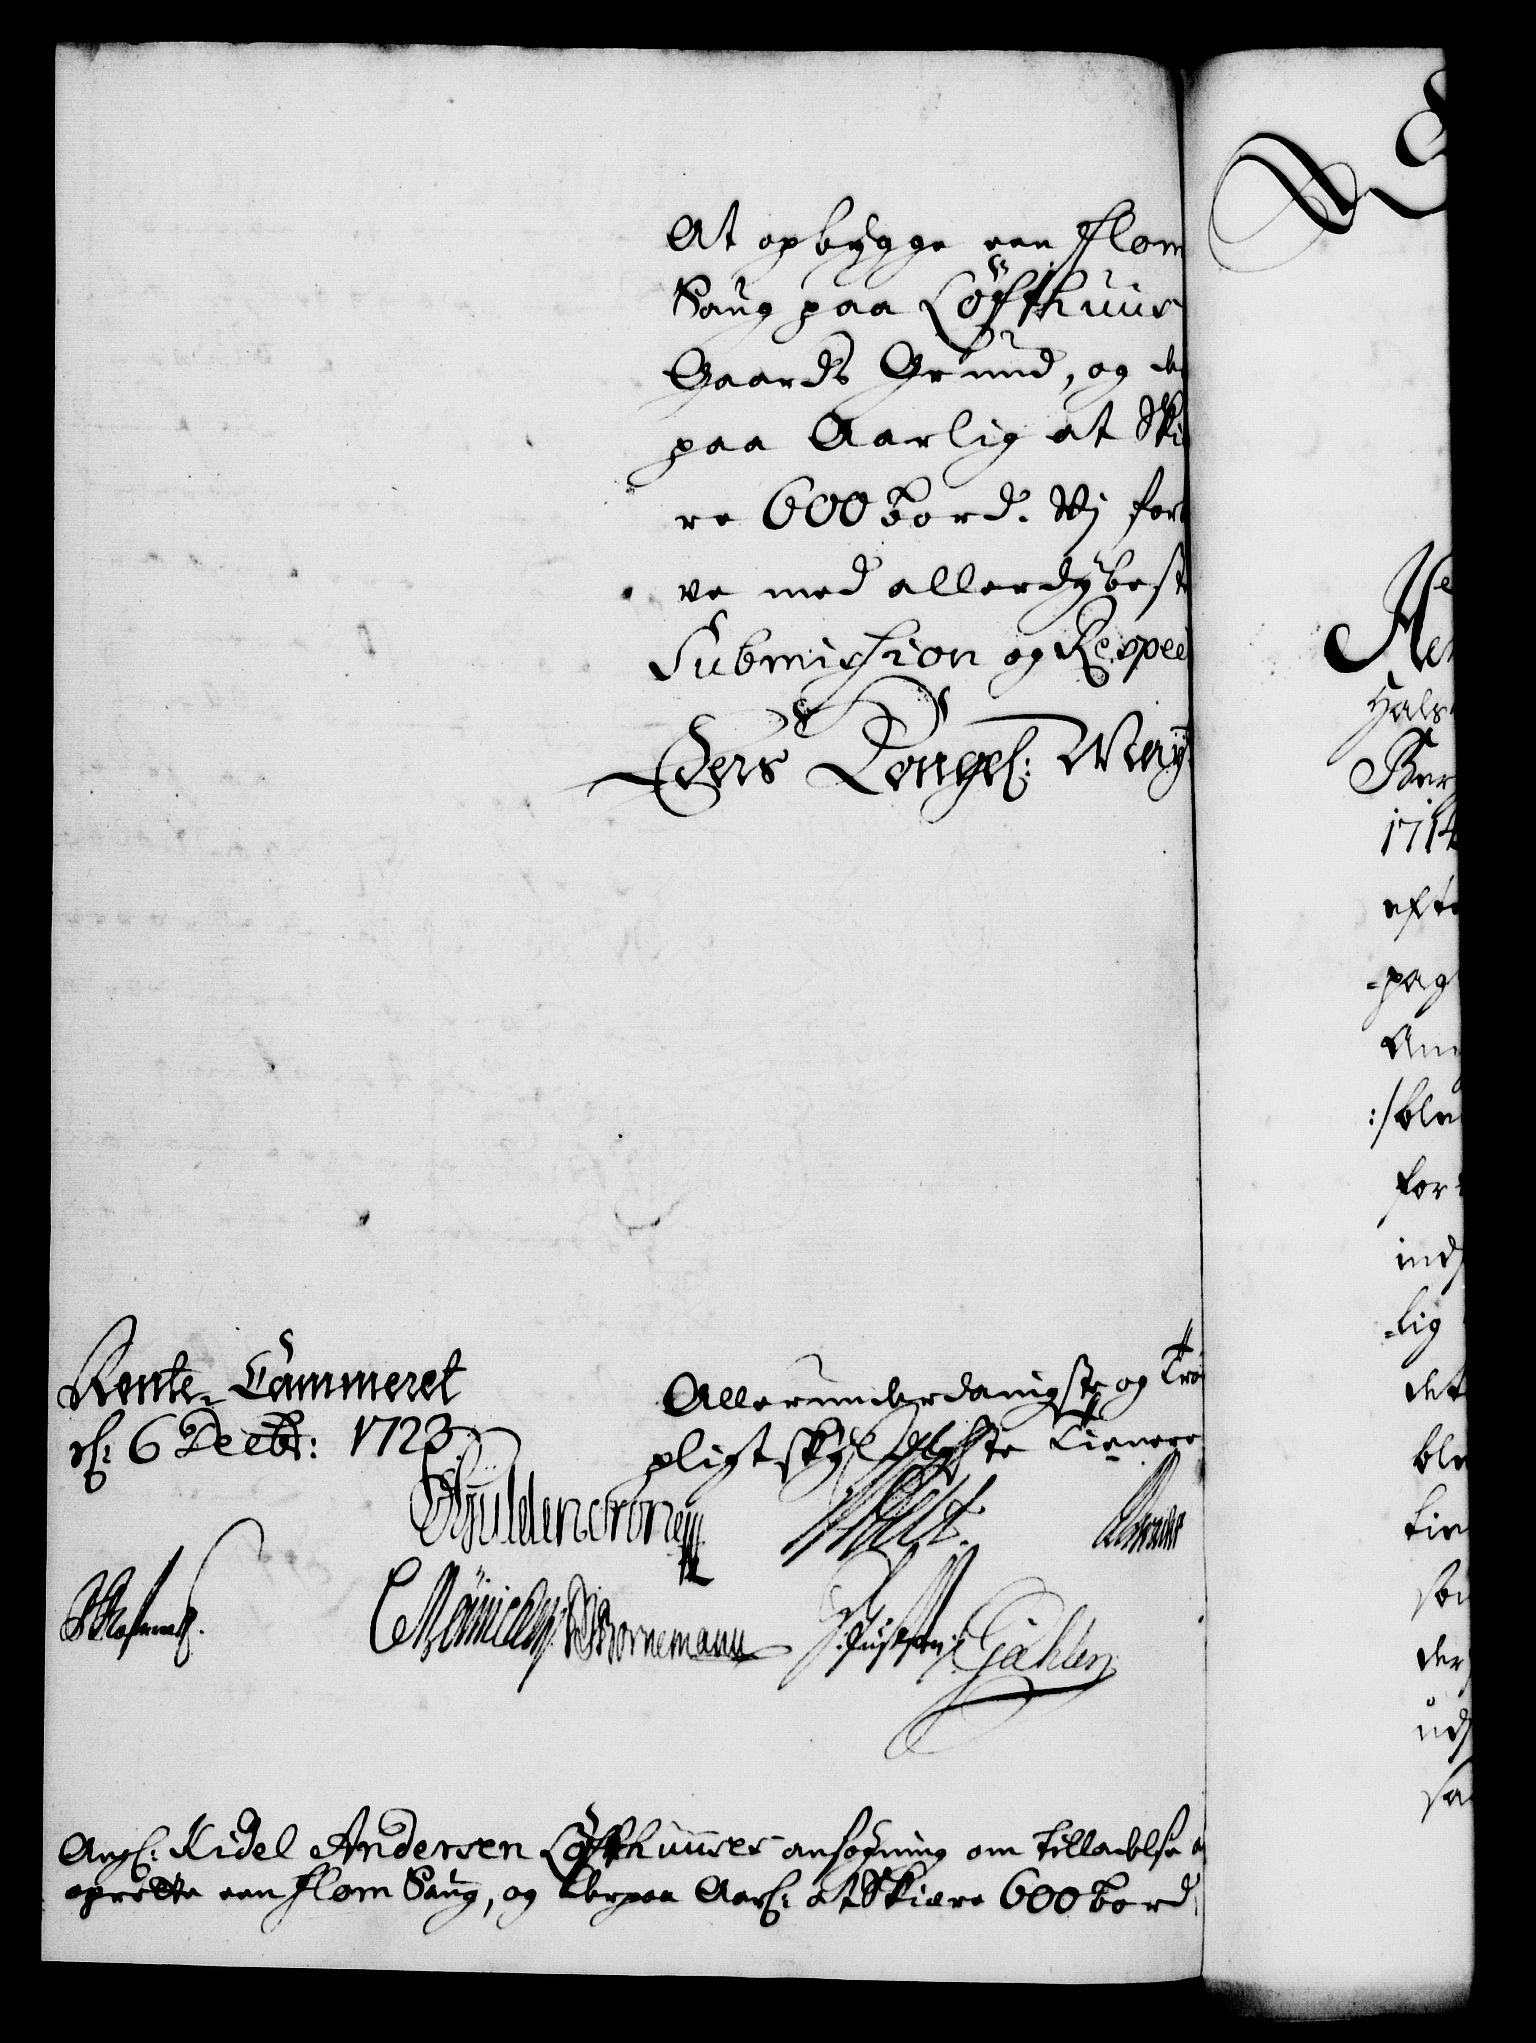 At opbygge een Flom
Saug paa Löfthuus
Gaards Grund, og de
paa Aarlig at Ski
re 600 bord. Wj for
ve med allerdybeste
Submission og Respec
Eders Kongel: May
Rente-Cammeret
d: 6 Decbr: 1723
Allerunderdanigste og Tro
pligtskyldigste Tienere
Gÿldencrone
CMöinichen WBornemann Gählen
Ang: Kidel Andersen Löfthuuses ansögning om tilladelse a
oprette een Flom Saug, og derpaa Aarl: at Skiære 600 bord.
Hals
1714
efte
-pag
:/ble
for
ind
-lig
det
ble
tie
so
der
ud
sa